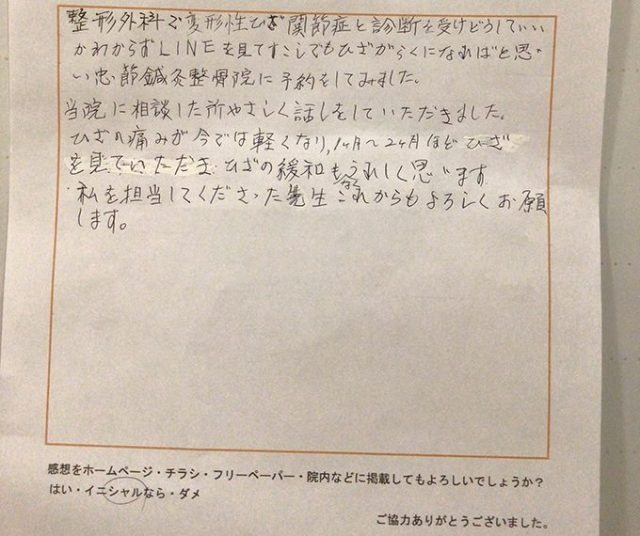 整形外科で変形性ひざ関節症と診断を受けどうしていい
かわからずLINEを見てすこしでもひざがらくになればと思
い忠節鍼灸整骨院に予約をしてみました。
当院に相談した所やさしく話しをしていただきました。
ひざの痛みが今では軽くなり,1ヶ月〜2ヶ月ほどひざ
を見ていただきひざの緩和もうれしく思います
私を担当してくださった先生これからもよろしくお願
します。
感想をホームページ・チラシ・フリーペーパー・院内などに掲載してもよろしいでしょうか?
はい・イニシャルなら・ダメ
ご協力ありがとうございました。